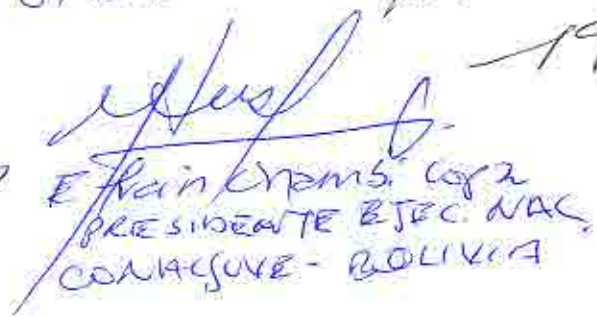 Efrain Chambi Copa
PRESIDENTE EJEC. NAC.
CONALJUVE - BOLIVIA